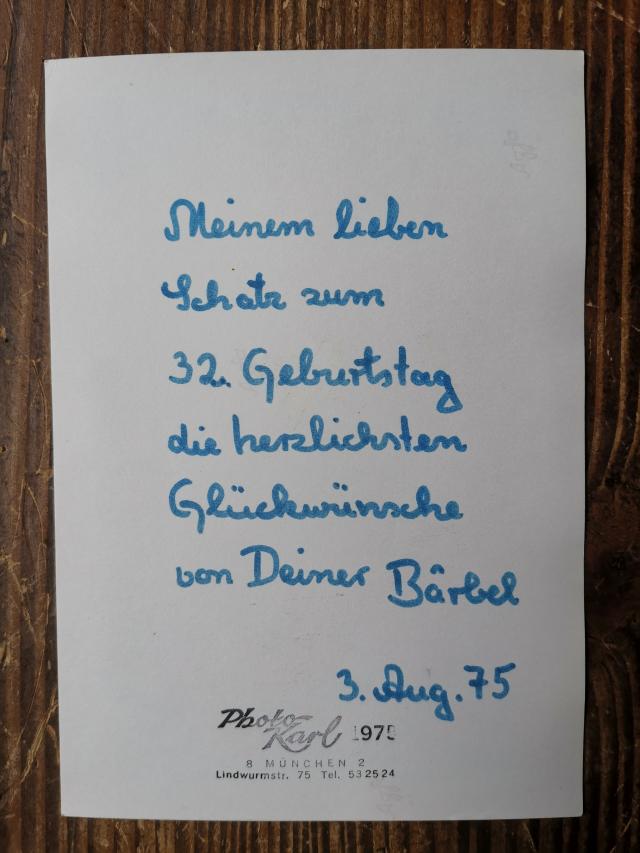 Meinem lieben
Schatz zum
32. Geburtstag
die herzlichsten
Glückwünsche
von Deiner Bärbel
3. Aug. 75
Photo Karl 1975
8 MÜNCHEN 2
Lindwurmstr. 75 Tel. 532524